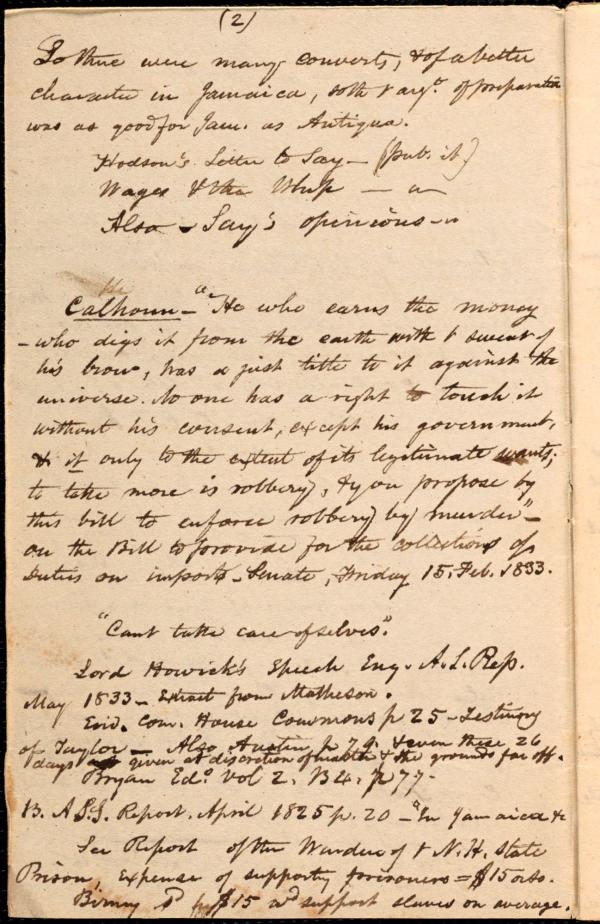 (2)
So there were many converts, & of a better
character in Jamaica, both & argt. of preparation
was as good for Jam. as Antigua.
Hodson's Letter to Say - (pub. it)
Wages & the Whip —
Also - Say's opinions -
Calhoun - "He who earns the money
- who digs it from the earth with t sweat of
his brow, has a just title to it against the
universe. No one has a right to touch it
without his consent, except his government,
& it only to the extent of its legitimate wants;
to take more is robbery, & you propose by
this bill to enforce robbery by murder" -
on the Bill to provide for the collections of
Duties on imports - Senate, Friday 15, Feb. 1833.
"Cant take care of selves".
Lord Howick's Speech Eng. A.S. Rep.
May 1833 - Extract from Matheson.
Evid. Com. House Commons p 25 - Testimony
of Taylor - Also Austin p 79. & even these 26
days given at discretion of master & the grounds far off.
Bryan Edo. Vol 2. B 4. p 77 -
B. A.S.S. Report. April 1825 p. 20 - "In Jamaica &c
See Report of the Warden of t N.H. State
Prison, Expense of supporting prisoners = $15 
Birney sd $15 wd support slaves on average.